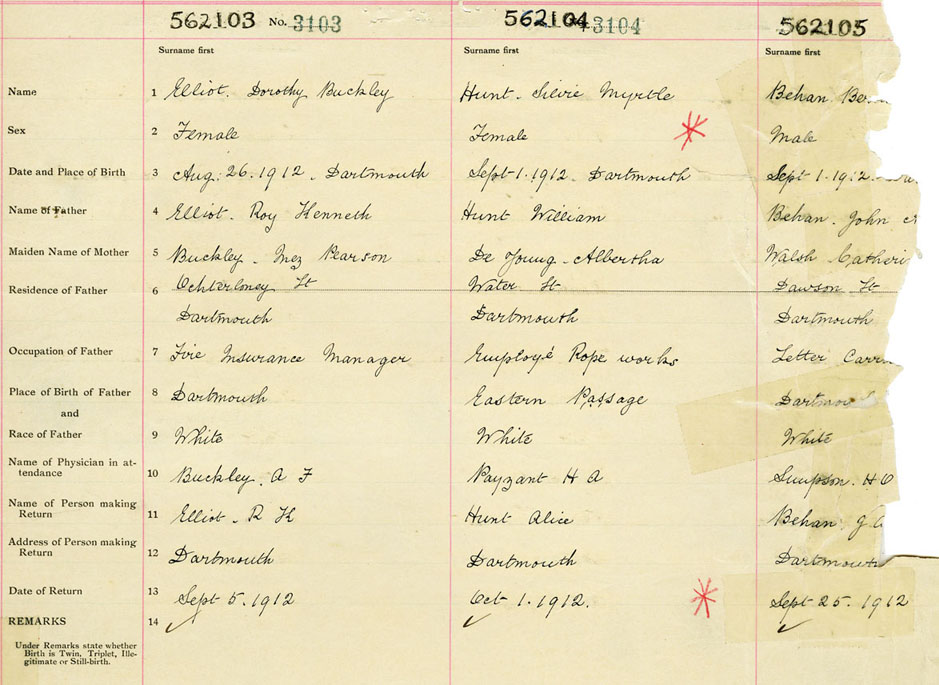 562103 No. 3103 562104 3104 562105
Surname first Surname first Surname first
Name 1 Elliot. Dorothy Buckley Hunt. Silvie Myrtle Behan
Sex 2 Female Female Male
Date and Place of Birth 3 Aug. 26. 1912. Dartmouth Sept. 1. 1912. Dartmouth Sept 1. 1912.
Name of Father 4 Elliot. Roy Kenneth Hunt William Behan. John
Maiden Name of Mother 5 Buckley. Inez Pearson De Young. Albertha Walsh Catheri
Residence of Father 6 Ochterloney St Water St Dawson St
Dartmouth Dartmouth Dartmouth
Occupation of Father 7 Fire Insurance Manager Employé Rope works Letter Carr
Place of Birth of Father 8 Dartmouth Eastern Passage Dartmou
and
Race of Father 9 White White White
Name of Physician in at-
tendance 10 Buckley. A F Payzant H A Simpson. H
Name of Person making
Return 11 Elliot. R K Hunt Alice Behan J
Address of Person making
Return 12 Dartmouth Dartmouth Dartmouth
Date of Return 13 Sept 5. 1912 Oct 1. 1912. Sept 25. 1912
REMARKS 14
Under Remarks state whether
Birth is Twin, Triplet, Ille-
gitimate or Still-birth.